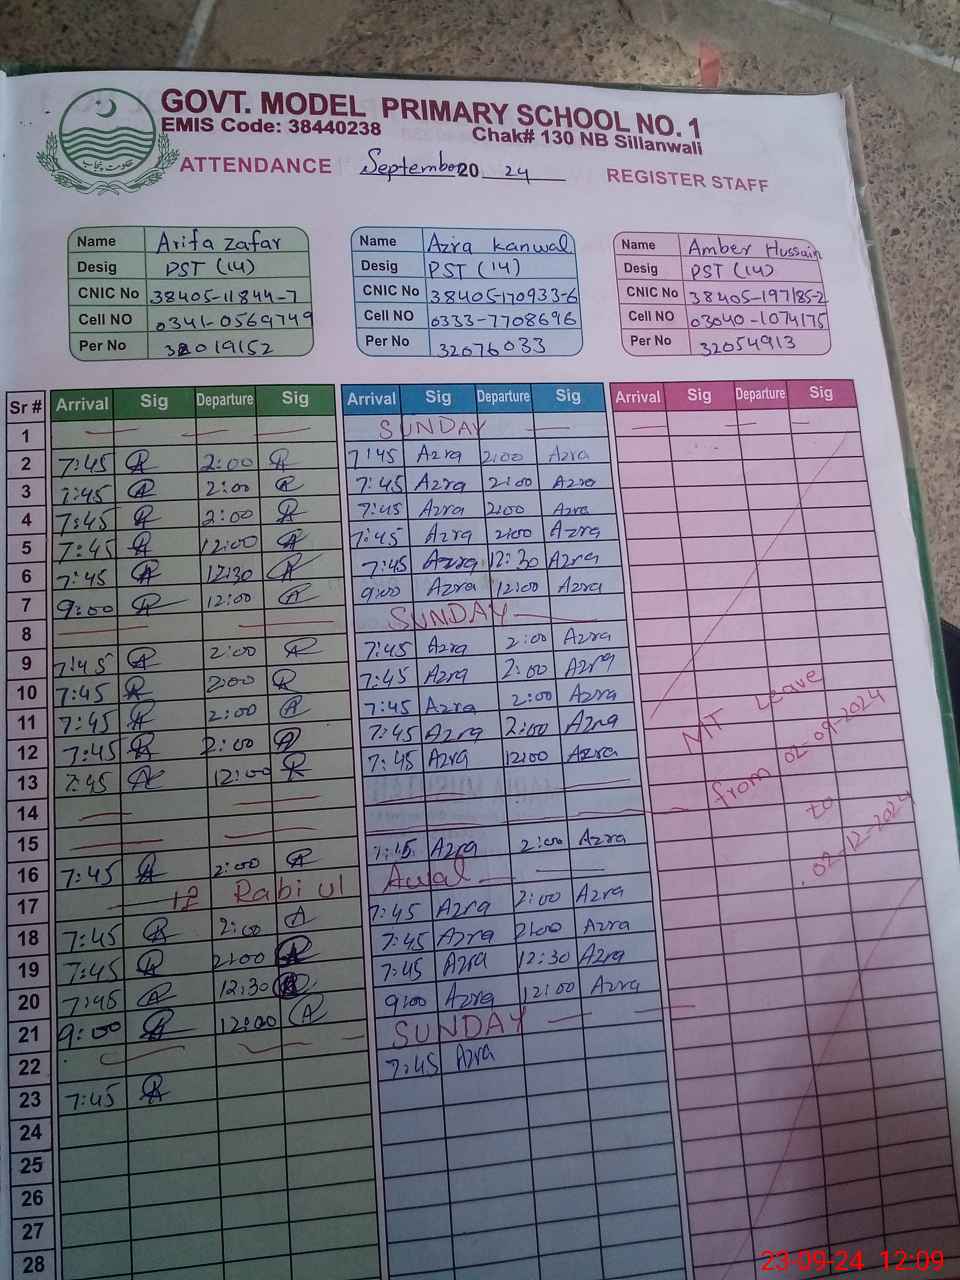 GOVT. MODEL PRIMARY SCHOOL NO. 1
EMIS Code: 38440238 Chak# 130 NB Sillanwali
حکومت پنجاب
ATTENDANCE September 2024 REGISTER STAFF
Name Arifa Zafar
Desig PST (14)
CNIC No 38405-11844-7
Cell NO 0341-0569749
Per No 32019152
Name Azra Kanwal
Desig PST (14)
CNIC No 38405-170933-6
Cell NO 0333-7708696
Per No 32076033
Name Amber Hussain
Desig PST (14)
CNIC No 38405-197185-2
Cell NO 03040-1074175
Per No 32054913
Sr # Arrival Sig Departure Sig Arrival Sig Departure Sig Arrival Sig Departure Sig
1 — — — SUNDAY — — — —
2 7:45 2:00 7:45 Azra 2:00 Azra
3 7:45 2:00 7:45 Azra 2:00 Azra
4 7:45 2:00 7:45 Azra 2:00 Azra
5 7:45 12:00 7:45 Azra 2:00 Azra
6 7:45 12:30 7:45 Azra 12:30 Azra
7 9:00 12:00 9:00 Azra 12:00 Azra
8 — — SUNDAY —
9 7:45 2:00 7:45 Azra 2:00 Azra
10 7:45 2:00 7:45 Azra 2:00 Azra
11 7:45 2:00 7:45 Azra 2:00 Azra
12 7:45 2:00 7:45 Azra 2:00 Azra
13 7:45 12:00 7:45 Azra 12:00 Azra
14 — — — —
15 — — — —
16 7:45 2:00 7:45 Azra 2:00 Azra
17 — 12 Rabi ul Awal — —
18 7:45 2:00 7:45 Azra 2:00 Azra
19 7:45 2:00 7:45 Azra 2:00 Azra
20 7:45 12:30 7:45 Azra 12:30 Azra
21 9:00 12:00 9:00 Azra 12:00 Azra
22 — — — SUNDAY — —
23 7:45 7:45 Azra
24
25
26
27
28
MT Leave
from 02-09-2024
to
02-12-2024
23-09-24 12:09